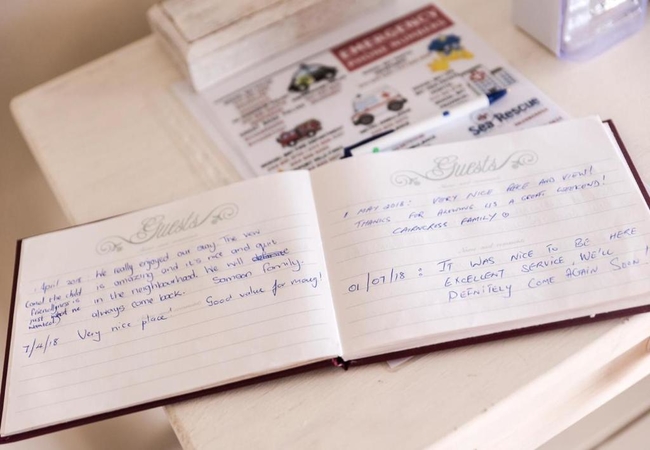 EMERGENCY
PHONE NUMBERS
Sea Rescue
Guests
April 2018. We really enjoyed our stay. The view
(and the child is amazing and it's nice and quit
friendlyness is in the neighbourhood. We will
just we always come back. Samson Family.
7/4/18 Very nice place! Good value for money!
Guests
1 MAY 2018: VERY NICE PLACE AND VIEW!
THANKS FOR ALLOWING US A GREAT WEEKEND!
CAIRNCROSS FAMILY ☺
01/07/18: IT WAS NICE TO BE HERE
EXCELLENT SERVICE, WE'LL
DEFNITELY COME AGAIN SOON!